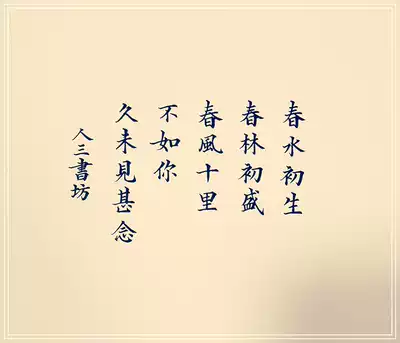 春水初生
春林初盛
春風十里
不如你
久未見甚念
人三書坊